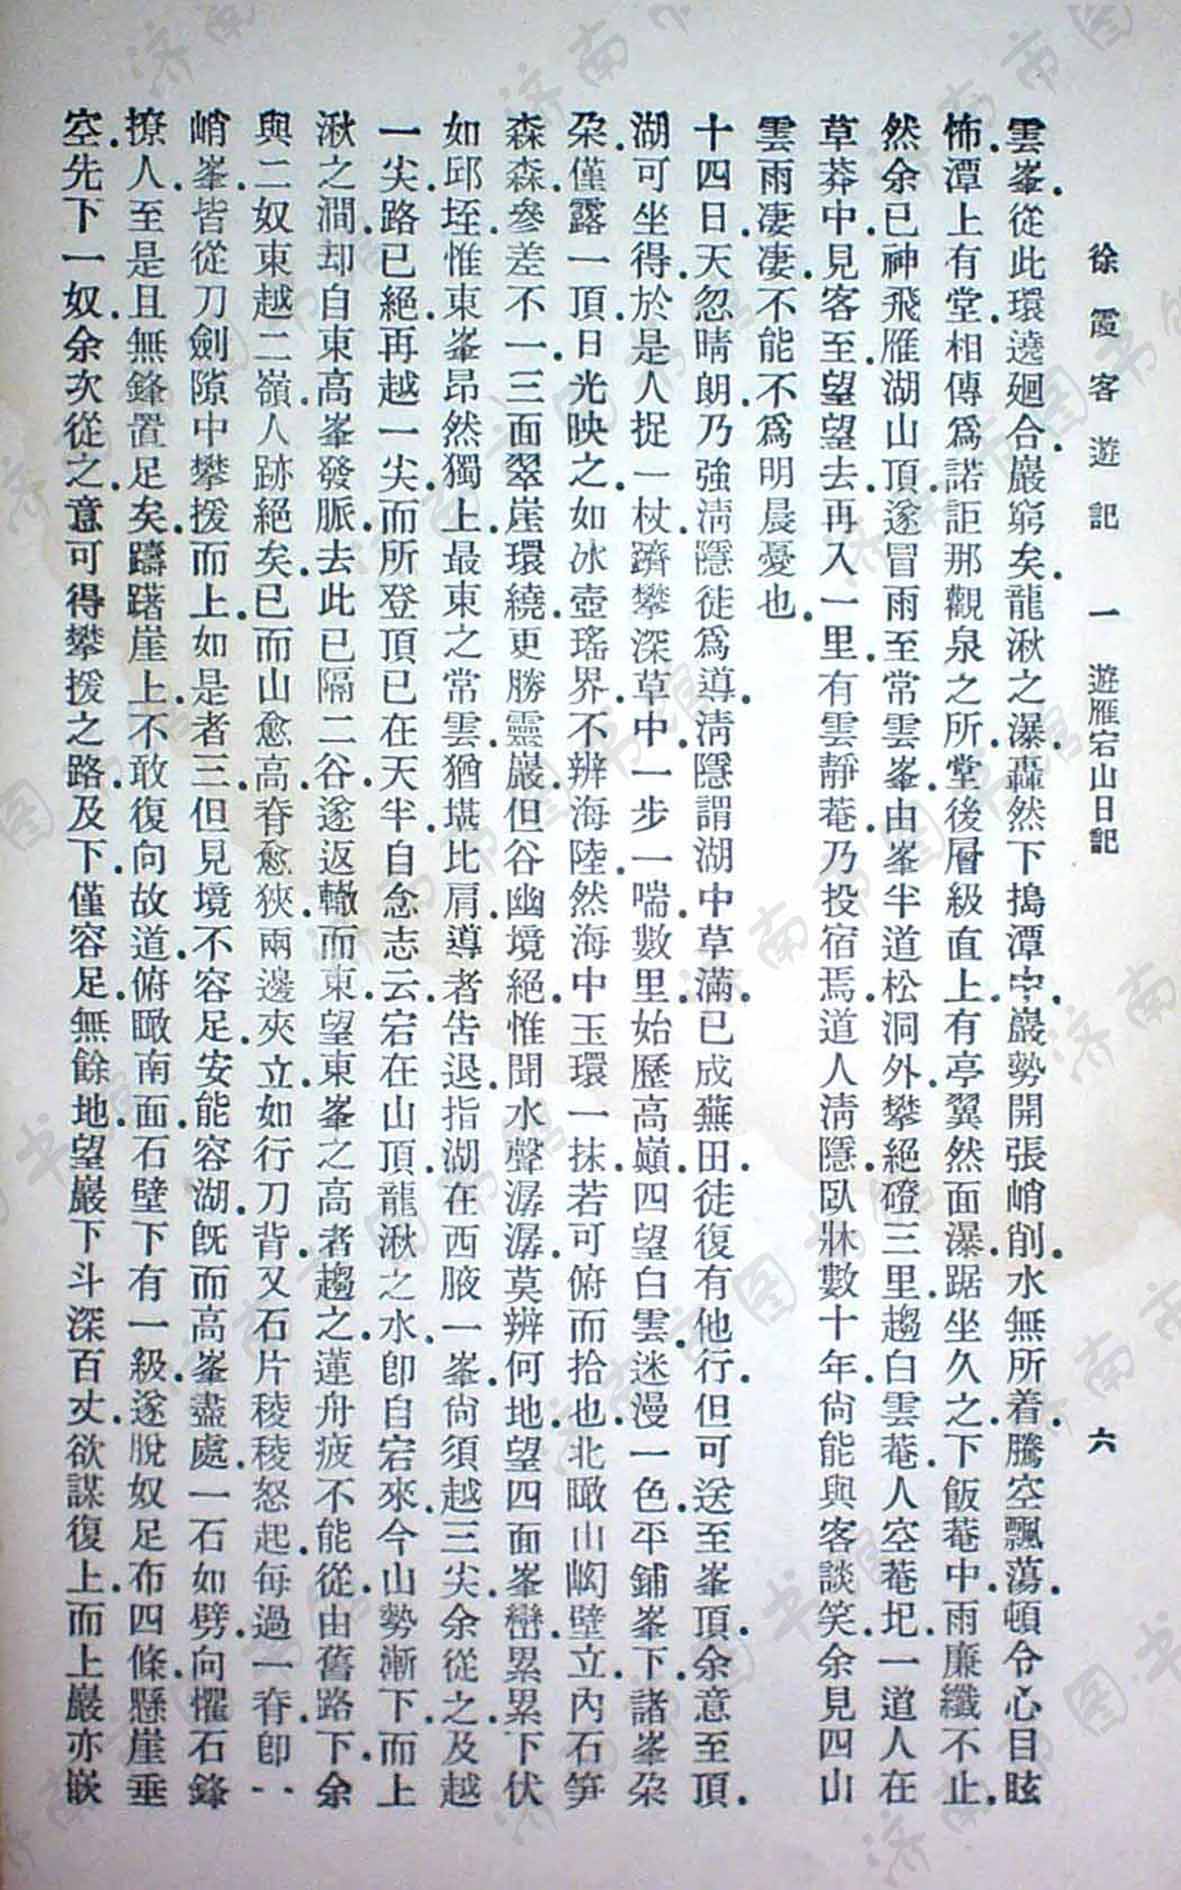 徐霞客遊記 一 遊雁宕山日記 六
雲峯．從此環遶廻合．巖窮矣．龍湫之瀑．轟然下搗潭中．巖勢開張峭削．水無所着．騰空飄蕩．頓令心目眩
怖．潭上有堂．相傳爲諾詎那觀泉之所．堂後層級直上．有亭翼然面瀑．踞坐久之．下飯菴中．雨廉纖不止．
然余已神飛雁湖山頂．遂冒雨至常雲峯．由峯半道松洞外．攀絕磴三里．趨白雲菴．人空菴圮．一道人在
草莽中．見客至．望望去．再入一里．有雲靜菴．乃投宿焉．道人淸隱．臥牀數十年．尙能與客談笑．余見四山
雲雨凄凄．不能不爲明晨憂也．
十四日．天忽晴朗．乃強淸隱徒爲導．淸隱謂湖中草滿．已成蕪田．徒復有他行．但可送至峯頂．余意至頂．
湖可坐得．於是人捉一杖．躋攀深草中．一步一喘．數里．始歷高巔．四望白雲．迷漫一色．平鋪峯下．諸峯朶
朶．僅露一頂．日光映之．如冰壺瑤界．不辨海陸．然海中玉環一抹．若可俯而拾也．北瞰山㘭壁立．內石笋
森森．參差不一．三面翠崖環繞．更勝靈巖．但谷幽境絕．惟聞水聲潺潺．莫辨何地．望四面峯巒累累．下伏
如邱垤．惟東峯昂然獨上．最東之常雲．猶堪比肩．導者吿退．指湖在西腋一峯．尙須越三尖．余從之．及越
一尖．路已絕．再越一尖．而所登頂已在天半．自念志云．宕在山頂．龍湫之水．卽自宕來．今山勢漸下．而上
湫之澗．却自東高峯發脈．去此已隔二谷．遂返轍而東．望東峯之高者趨之．蓮舟疲不能從．由舊路下．余
與二奴東越二嶺．人跡絕矣．已而山愈高．脊愈狹．兩邊夾立．如行刀背．又石片稜稜怒起．每過一脊．卽一
峭峯．皆從刀劍隙中攀援而上．如是者三．但見境不容足．安能容湖．旣而高峯盡處．一石如劈．向懼石鋒
撩人．至是且無鋒置足矣．躊躇崖上．不敢復向故道．俯瞰南面．石壁下有一級．遂脫奴足布四條．懸崖垂
空．先下一奴．余次從之．意可得攀援之路．及下．僅容足．無餘地．望巖下斗深百丈．欲謀復上．而上巖亦嵌